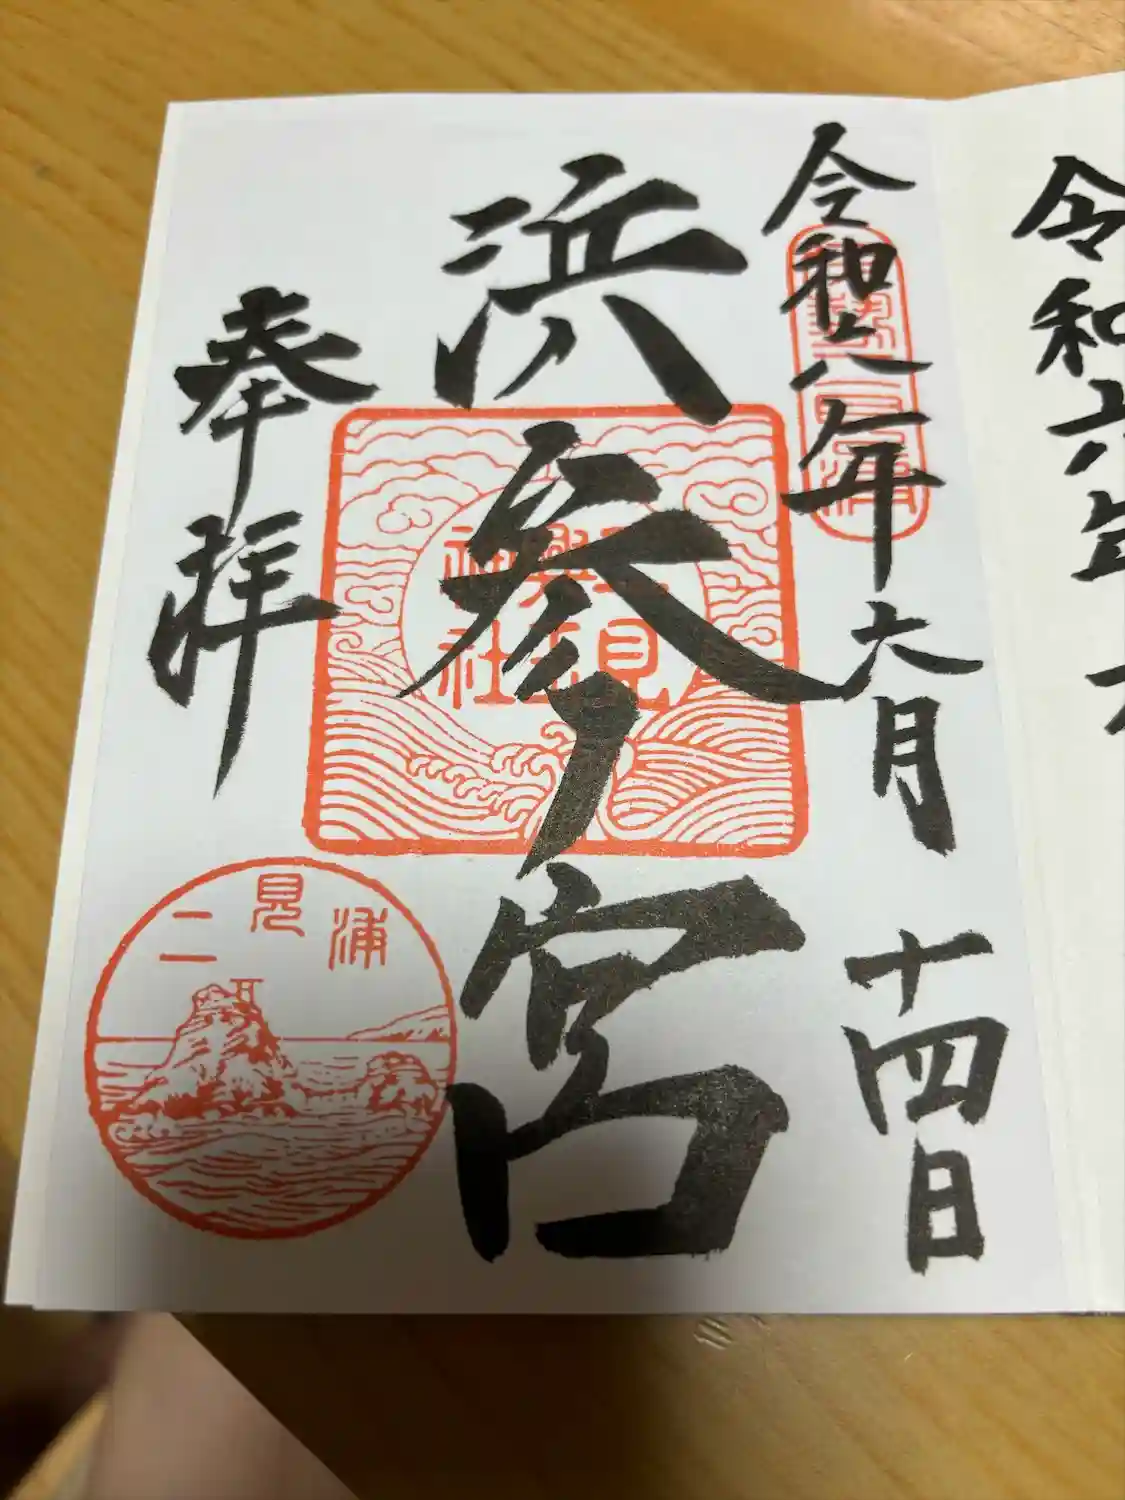 令和六年六
令和六年六月十四日
伊勢二見浦
浜参宮
二見興玉神社
奉拝
二見浦